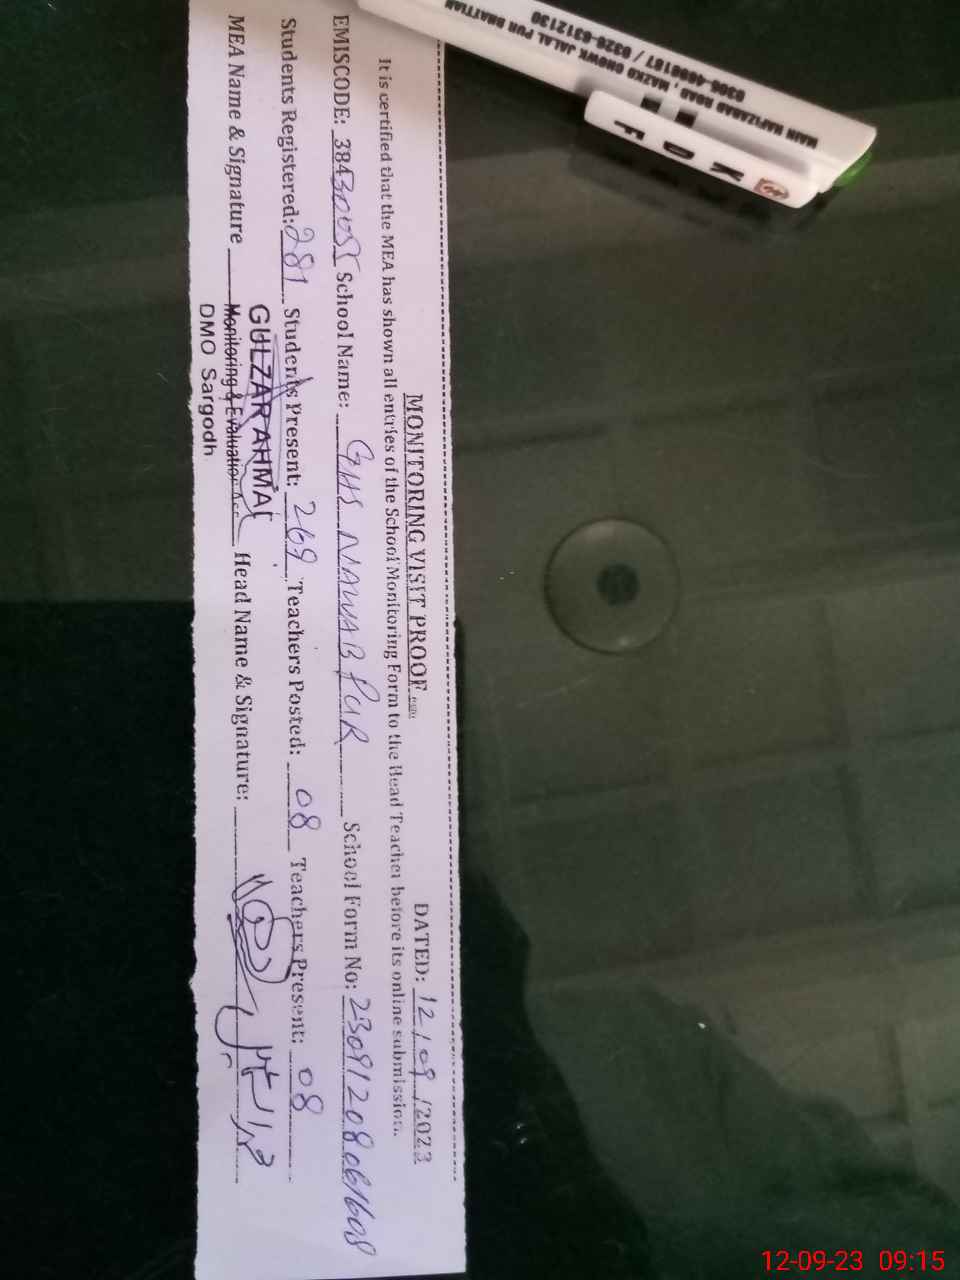 MONITORING VISIT PROOF
DATED: 12/09/2023
It is certified that the MEA has shown all entries of the School Monitoring Form to the Head Teacher before its online submission.
EMISCODE: 38430055 School Name: GHS NAWAB PUR School Form No: 23091208061608
Students Registered: 281 Students Present: 269 Teachers Posted: 08 Teachers Present: 08
MEA Name & Signature Head Name & Signature:
GULZAR AHMA
Monitoring & Evaluation
DMO Sargodh
MAIN HAFIZABAD ROAD, MAZKO CHOWK JALAL PUR BHATTIAN
0306-4698187 / 0326-6312130
12-09-23 09:15